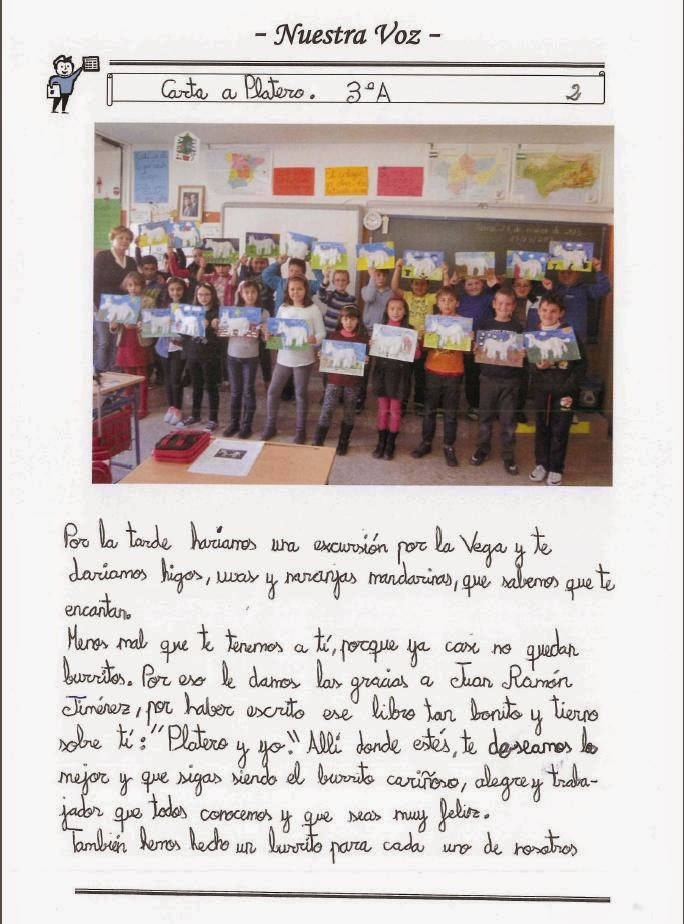 - Nuestra Voz -
Carta a Platero. 3ºA 2
Por la tarde haríamos una excursión por la Vega y te
daríamos higos, uvas y naranjas mandarinas, que sabemos que te
encantan.
Menos mal que te tenemos a tí, porque ya casi no quedan
burritos. Por eso le damos las gracias a Juan Ramón
Jiménez, por haber escrito ese libro tan bonito y tierno
sobre tí: "Platero y yo". Allí donde estés, te deseamos lo
mejor y que sigas siendo el burrito cariñoso, alegre y traba-
jador que todos conocemos y que seas muy feliz.
También hemos hecho un burrito para cada uno de nosotros